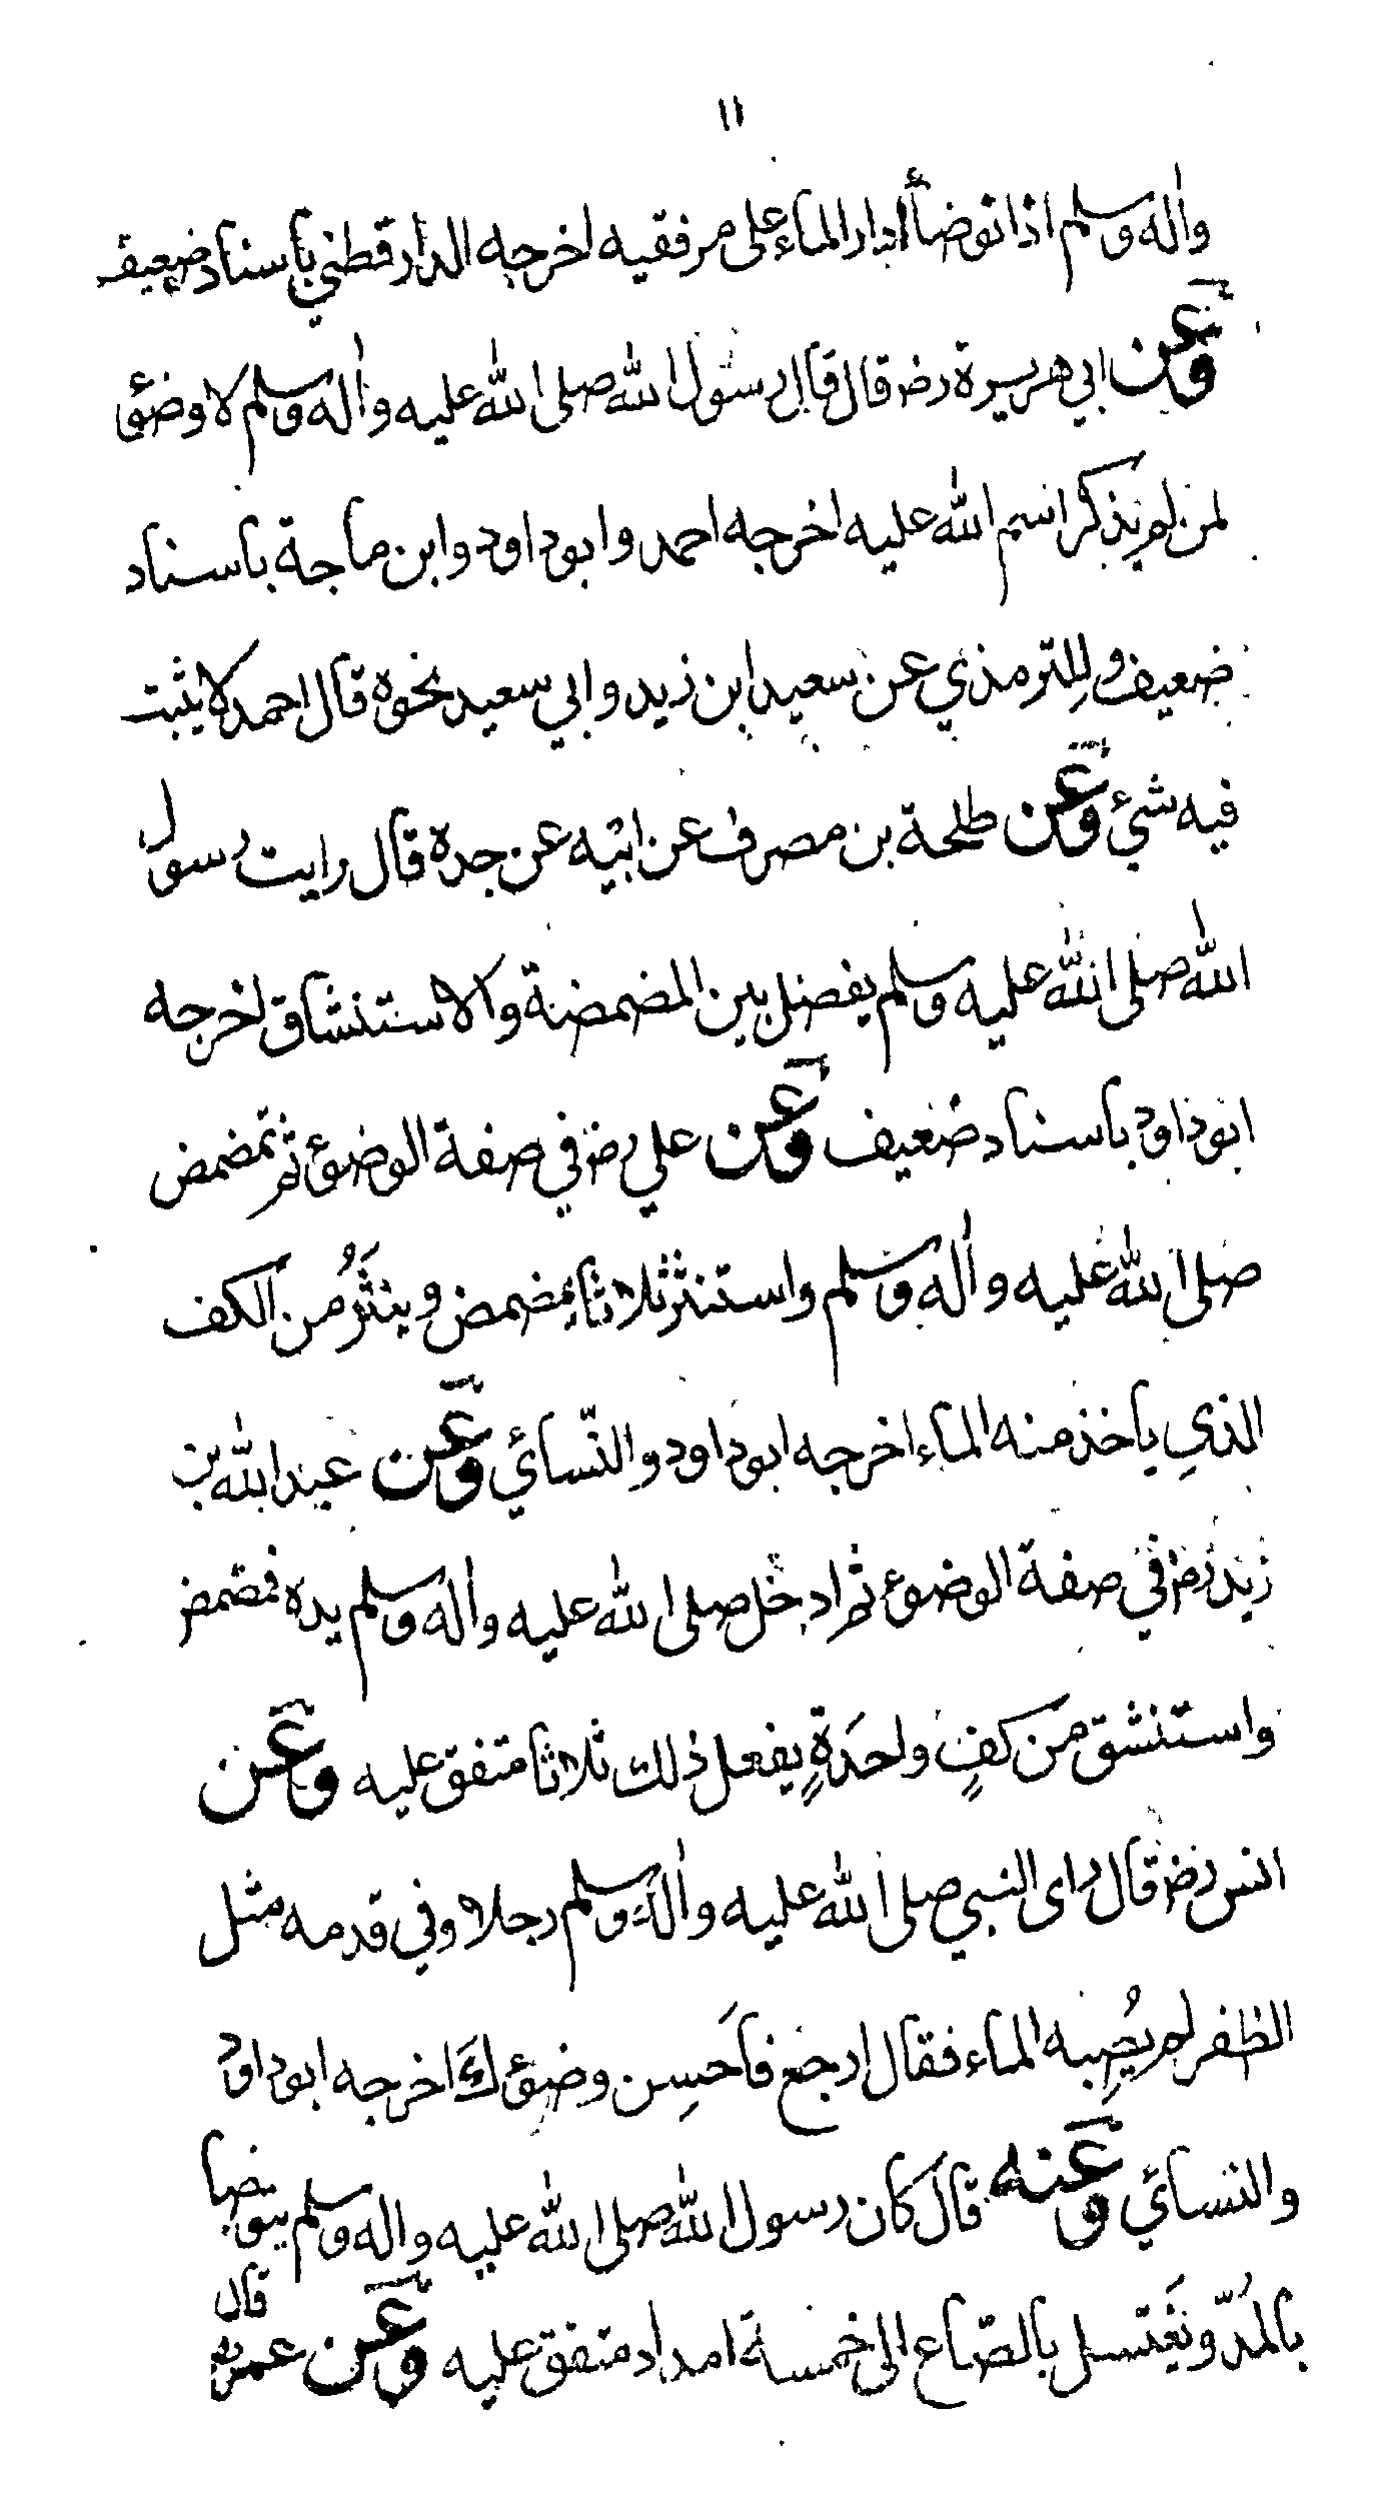 ١١
واله وسلم اذا توضأ ادار الماء على مرفقيه اخرجه الدارقطني باسناد ضعيف
وعن ابي هريرة رض قال قال رسول الله صلى الله عليه واله وسلم لا وضوئ
لمن لم يذكر اسم الله عليه اخرجه احمد وابوداود وابن ماجة باسناد
ضعيف وللترمذي عن سعيد ابن زيد وابي سعيد نحوه قال احمد لا يثبت
فيه شيء وعن طلحة بن مصرف عن ابيه عن جده قال رايت رسول
الله صلى الله عليه وسلم يفصل بين المضمضة والاستنشاق اخرجه
ابوداود باسناد ضعيف وعن علي رض في صفة الوضوء ثم تمضمض
صلى الله عليه واله وسلم واستنثر ثلاثا يمضمض وينثُر من الكف
الذي ياخذ منه الماء اخرجه ابوداود والنّسائي وعن عبد الله بن
زيد رض في صفة الوضوء ثم ادخل صلى الله عليه واله وسلم يده فمضمض
واستنشق من كفٍ واحدَةٍ يفعل ذلك ثلاثا متفق عليه وعن
انس رض قال راى النبي صلى الله عليه واله وسلم رجلا وفي قدمه مثل
الظفر لم يُصِبه الماء فقال ارجع فاَحسِن وضوءكَ اخرجه ابوداود
والنسائي وعنه قال كان رسول الله صلى الله عليه واله وسلم يتوضا
بالمُدّ ويَغتسل بالصّاع الى خمسة امداد متفق عليه وعن عمر رض قال